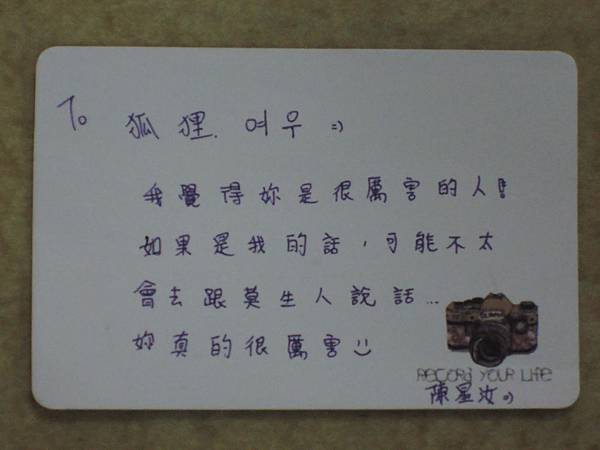 To 狐狸. 여우 =)
我覺得妳是很厲害的人!!
如果是我的話，可能不太
會去跟莫生人說話...
妳真的很厲害:)
RECORD YOUR LIFE
陳星汝=)